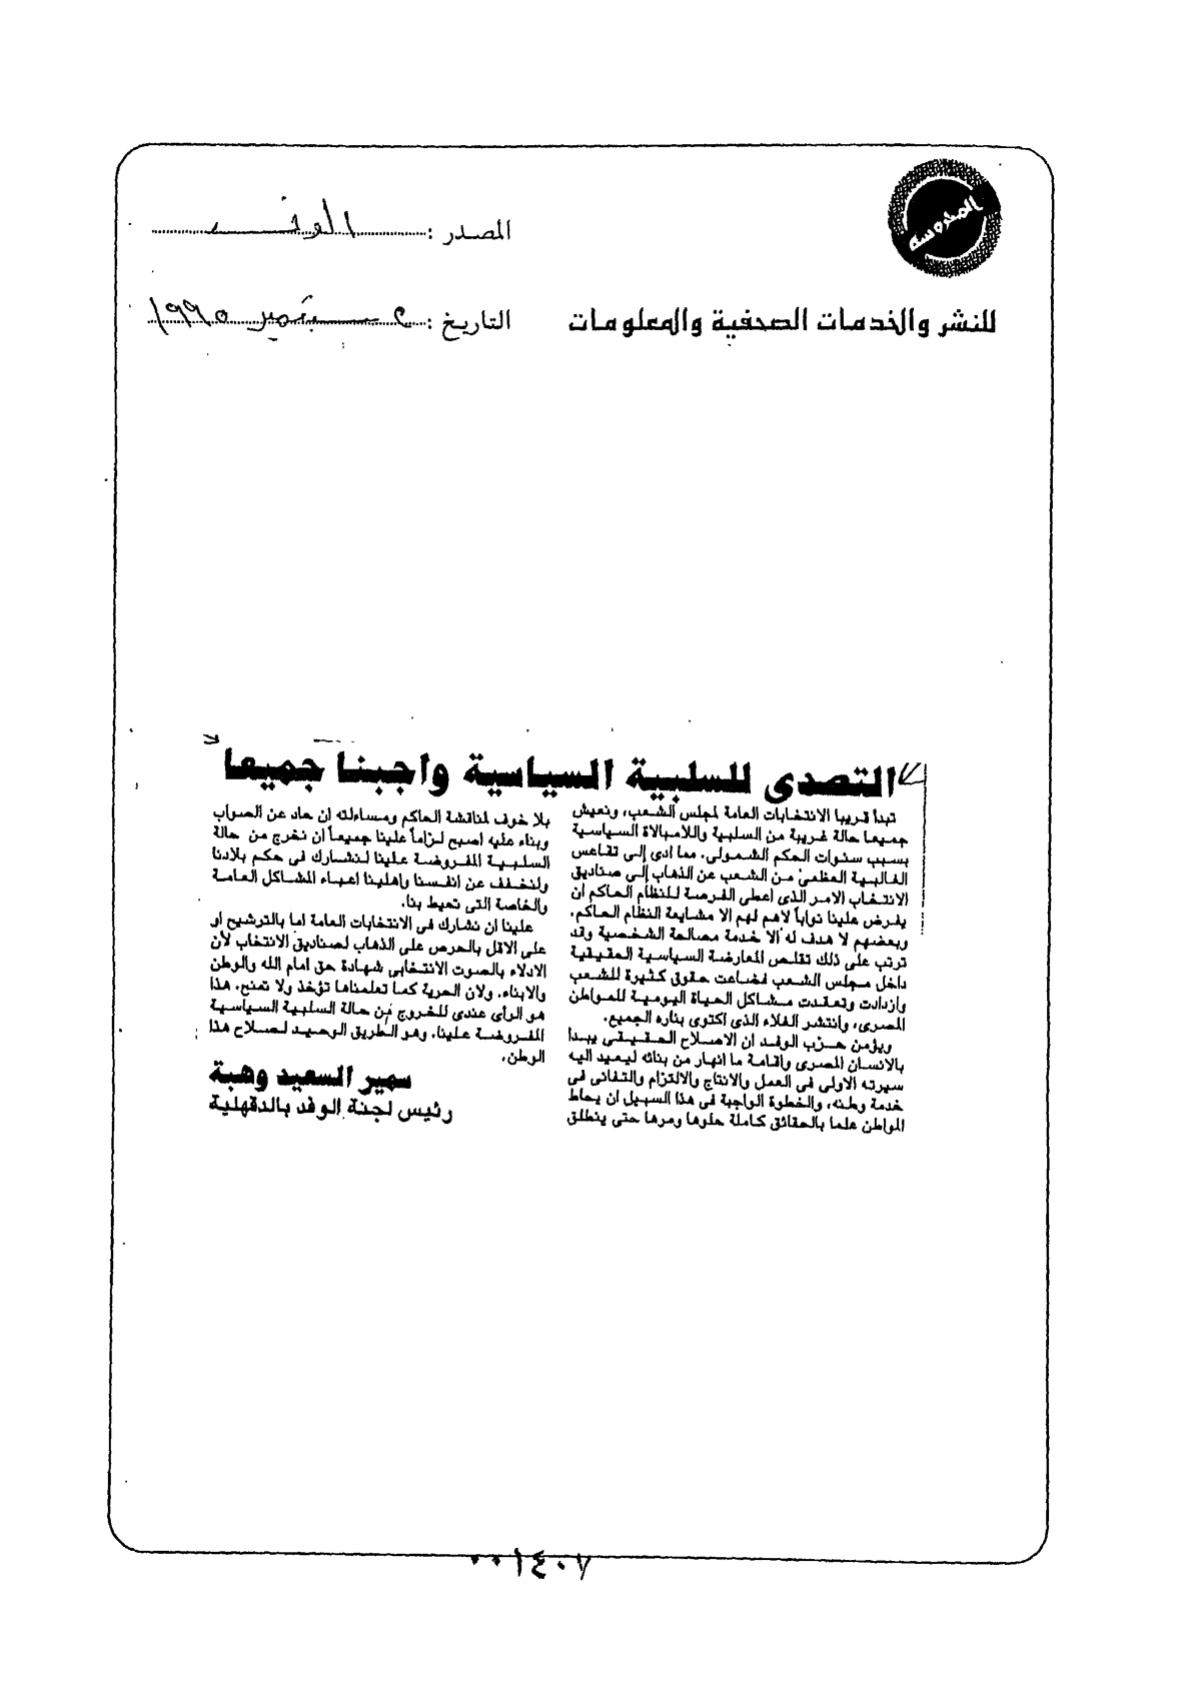 المحروسة
للنشر والخدمات الصحفية والمعلومات
المصدر : الوفد
التاريخ : سبتمبر ١٩٩٥
التصدى للسلبية السياسية واجبنا جميعا
تبدأ قريبا الانتخابات العامة لمجلس الشعب، ونعيش
جميعا حالة غريبة من السلبية واللامبالاة السياسية
بسبب سنوات الحكم الشمولى. مما ادى إلى تقاعس
الغالبية العظمى من الشعب عن الذهاب إلى صناديق
الانتخاب الامر الذى اعطى الفرصة للنظام الحاكم ان
يفرض علينا نواباً لاهم لهم الا مشايعة النظام الحاكم.
وبعضهم لا هدف له الا خدمة مصالحة الشخصية وقد
ترتب على ذلك تقلص المعارضة السياسية الحقيقية
داخل مجلس الشعب فضاعت حقوق كثيرة للشعب
وازدادت وتعقدت مشاكل الحياة اليومية للمواطن
المصرى، وانتشر الغلاء الذى اكتوى بناره الجميع.
ويؤمن حزب الوفد ان الاصلاح الحقيقى يبدا
بالانسان المصرى واقامة ما انهار من بنائه ليعيد اليه
سيرته الاولى فى العمل والانتاج والالتزام والتفانى فى
خدمة وطنه، والخطوة الواجبة فى هذا السبيل ان يحاط
المواطن علما بالحقائق كاملة حلوها ومرها حتى ينطلق
بلا خوف لمناقشة الحاكم ومساءلته ان حاد عن الصواب
وبناء عليه اصبح لزاماً علينا جميعاً ان نخرج من حالة
السلبية المفروضة علينا لنشارك فى حكم بلادنا
ولنخفف عن انفسنا واهلينا اعباء المشاكل العامة
والخاصة التى تحيط بنا.
علينا ان نشارك فى الانتخابات العامة اما بالترشيح او
على الاقل بالحرص على الذهاب لصناديق الانتخاب لأن
الادلاء بالصوت الانتخابى شهادة حق امام الله والوطن
والابناء. ولان الحرية كما تعلمناها تؤخذ ولا تمنح. هذا
هو الرأى عندى للخروج من حالة السلبية السياسية
المفروضة علينا. وهو الطريق الوحيد لصلاح هذا
الوطن.
سمير السعيد وهبة
رئيس لجنة الوفد بالدقهلية
٠٠١٤٠٧